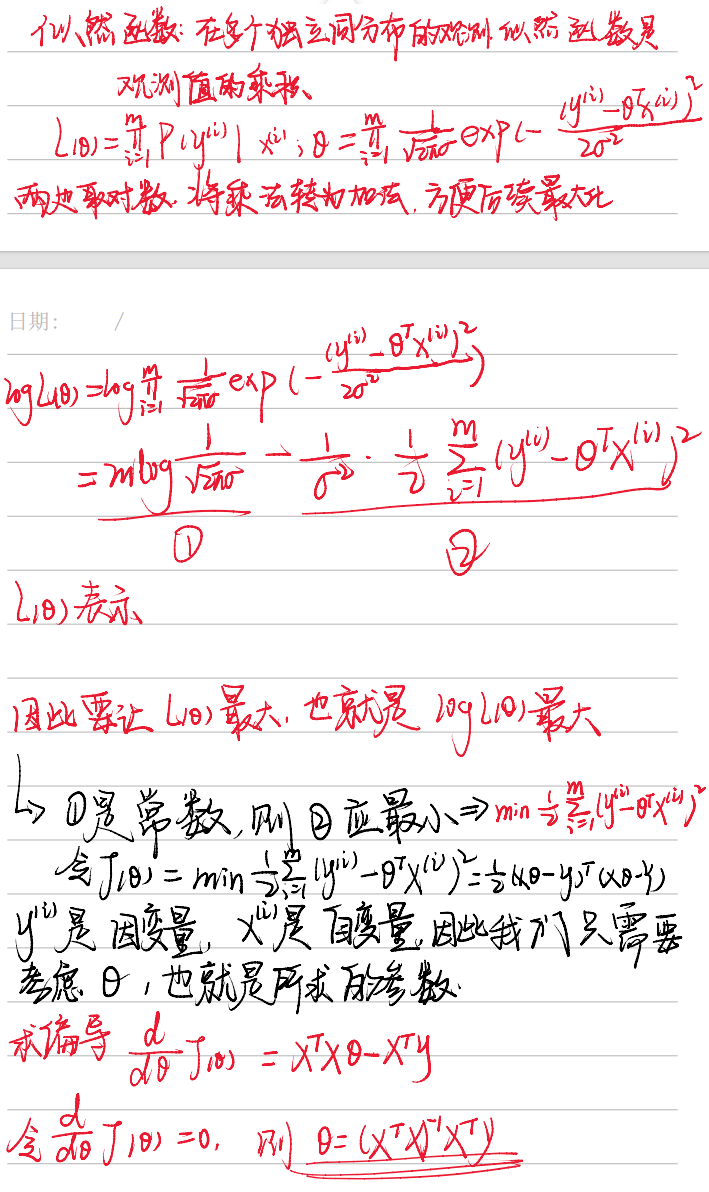 似然函数: 在多个独立同分布的观测似然函数是
观测值的乘积、
L(θ)=∏_{i=1}^{m} P(y^{(i)} | x^{(i)}; θ = ∏_{i=1}^{m} \frac{1}{\sqrt{2π}σ} exp(- \frac{(y^{(i)}-θ^T x^{(i)})^2}{2σ^2}
两边取对数. 将乘法转为加法, 方便后续最大化
日期: /
log L(θ) = log ∏_{i=1}^{m} \frac{1}{\sqrt{2π}σ} exp(- \frac{(y^{(i)}-θ^T x^{(i)})^2}{2σ^2})
= m log \frac{1}{\sqrt{2π}σ} - \frac{1}{σ^2} · \frac{1}{2} ∑_{i=1}^{m} (y^{(i)}-θ^T x^{(i)})^2
① ②
L(θ) 表示
因此要让 L(θ) 最大, 也就是 log L(θ) 最大
↳ ①是常数, 则 ② 应最小 ⇒ min \frac{1}{2} ∑_{i=1}^{m} (y^{(i)}-θ^T x^{(i)})^2
令 J(θ) = min \frac{1}{2} ∑_{i=1}^{m} (y^{(i)}-θ^T x^{(i)})^2 = \frac{1}{2} (xθ-y)^T (xθ-y)
y^{(i)} 是因变量, x^{(i)} 是自变量, 因此我们只需要
考虑 θ, 也就是所求的参数.
求偏导 \frac{d}{dθ} J(θ) = x^T x θ - x^T y
令 \frac{d}{dθ} J(θ) = 0, 则 θ = (x^T x)^{-1} x^T y